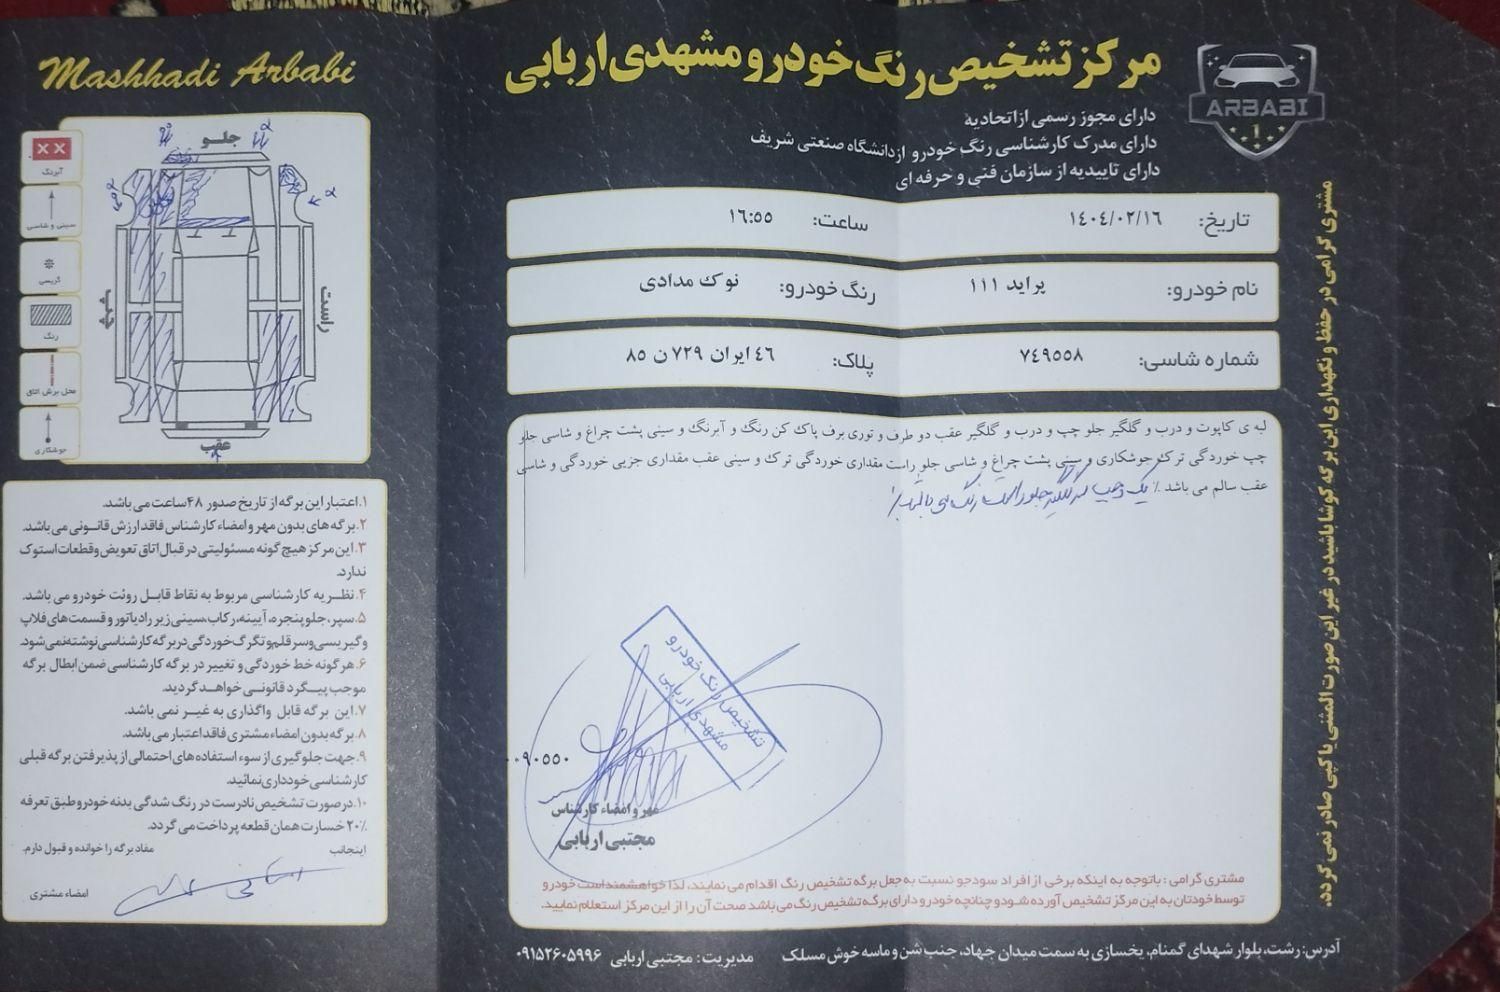 Mashhadi Arbabi
مرکز تشخیص رنگ خودرو مشهدی اربابی
ARBABI
1
دارای مجوز رسمی از اتحادیه
دارای مدرک کارشناسی رنگ خودرو از دانشگاه صنعتی شریف
دارای تاییدیه از سازمان فنی و حرفه ای
تاریخ: ۱۴۰۴/۰۲/۱۶
ساعت: ۱۶:۵۵
نام خودرو: پراید ۱۱۱
رنگ خودرو: نوک مدادی
شماره شاسی: ۷۴۹۵۵۸
پلاک: ۴۶ ایران ۷۲۹ ن ۸۵
لبه ی کاپوت و درب و گلگیر جلو چپ و درب و گلگیر عقب دو طرف و توری برف پاک کن رنگ و آبرنگ و سینی پشت چراغ و شاسی جلو
چپ خوردگی ترک جوشکاری و سینی پشت چراغ و شاسی جلو راست مقداری خوردگی ترک و سینی عقب مقداری جزیی خوردگی و شاسی
عقب سالم می باشد ./ یک وجب گلگیر جلو راست رنگ می باشد./
تشخیص رنگ خودرو
مشهدی اربابی
۰۰۹۰۵۵۰
مهر و امضاء کارشناس
مجتبی اربابی
مشتری گرامی : باتوجه به اینکه برخی از افراد سودجو نسبت به جعل برگه تشخیص رنگ اقدام می نمایند، لذا خواهشمند است خودرو
توسط خودتان به این مرکز تشخیص آورده شود و چنانچه خودرو دارای برگه تشخیص رنگ می باشد صحت آن را از این مرکز استعلام نمایید.
آدرس: رشت، بلوار شهدای گمنام، یخسازی به سمت میدان جهاد، جنب شن و ماسه خوش مسلک
مدیریت: مجتبی اربابی ۰۹۱۵۲۶۰۵۹۹۶
مشتری گرامی در حفظ و نگهداری این برگه کوشا باشید در غیر این صورت المثنی یا کپی صادر نمی گردد.
جلو
راست
چپ
عقب
آبرنگ
سینی و شاسی
گریسی
رنگ
محل برش اتاق
جوشکاری
۱.اعتبار این برگه از تاریخ صدور ۴۸ ساعت می باشد.
۲.برگه های بدون مهر و امضاء کارشناس فاقد ارزش قانونی می باشد.
۳.این مرکز هیچ گونه مسئولیتی در قبال اتاق تعویض و قطعات استوک
ندارد.
۴.نظریه کارشناسی مربوط به نقاط قابل روئت خودرو می باشد.
۵.سپر، جلو پنجره، آیینه، رکاب،سینی زیر رادیاتور و قسمت های فلاپ
و گیریسی و سر قلم و تگرگ خوردگی در برگه کارشناسی نوشته نمی شود.
۶.هرگونه خط خوردگی و تغییر در برگه کارشناسی ضمن ابطال برگه
موجب پیگرد قانونی خواهد گردید.
۷.این برگه قابل واگذاری به غیر نمی باشد.
۸.برگه بدون امضاء مشتری فاقد اعتبار می باشد.
۹.جهت جلوگیری از سوء استفاده های احتمالی از پذیرفتن برگه قبلی
کارشناسی خودداری نمائید.
۱۰.در صورت تشخیص نادرست در رنگ شدگی بدنه خودرو طبق تعرفه
۲۰٪ خسارت همان قطعه پرداخت می گردد.
اینجانب مفاد برگه را خوانده و قبول دارم.
امضاء مشتری